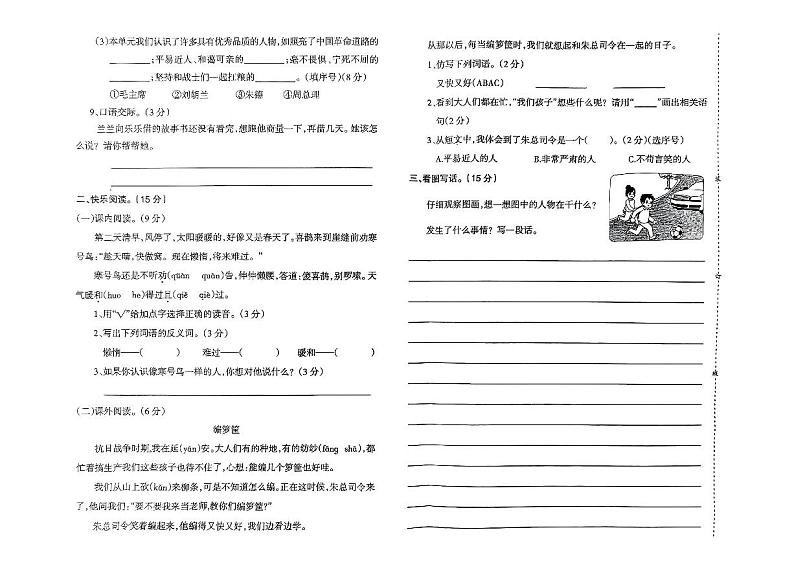 (3)本单元我们认识了许多具有优秀品质的人物,如照亮了中国革命道路的
________;平易近人、和蔼可亲的________;毫不畏惧、宁死不屈的
________;坚持和战士们一起扛粮的________。(填序号)(8分)
①毛主席 ②刘胡兰 ③朱德 ④周总理
9、口语交际。(3分)
兰兰向乐乐借的故事书还没有看完,想跟他商量一下,再借几天。她该怎
么说?请你帮帮她。
二、快乐阅读。(15分)
(一)课内阅读。(9分)
第二天清早,风停了,太阳暖暖的,好像又是春天了。喜鹊来到崖缝前劝寒
号鸟:“趁天晴,快做窝。现在懒惰,将来难过。”
寒号鸟还是不听劝(qüàn quàn)告,伸伸懒腰,答道:傻喜鹊,别啰嗦。天
气暖和(huo he)得过且(qiě qiè)过。
1、用“√”给加点字选择正确的读音。(3分)
2、写出下列词语的反义词。(3分)
懒惰——( ) 难过——( ) 暖和——( )
3、如果你认识像寒号鸟一样的人,你想对他说什么?(3分)
(二)课外阅读。(6分)
编箩筐
抗日战争时期,我在延(yán)安。大人们有的种地,有的纺纱(fǎng shā),都
忙着搞生产我们这些孩子也待不住了,心想:能编几个箩筐也好哇。
我们从山上砍(kǎn)来柳条,可是不知道怎么编。正在这时侯,朱总司令来
了,他问我们:“要不要我来当老师,教你们编箩筐?”
朱总司令笑着编起来,他编得又快又好,我们边看边学。
从那以后,每当编箩筐时,我们就想起和朱总司令在一起的日子。
1、仿写下列词语。(2分)
又快又好(ABAC) ________ ________
2、看到大人们都在忙,“我们孩子”想些什么呢?请用“____”画出相关语
句(2分)
3、从短文中,我体会到了朱总司令是一个( )。(2分)(选序号)
A.平易近人的人 B.非常严肃的人 C.不苟言笑的人
三、看图写话。(15分)
仔细观察图画,想一想图中的人物在干什么?
发生了什么事情?写一段话。